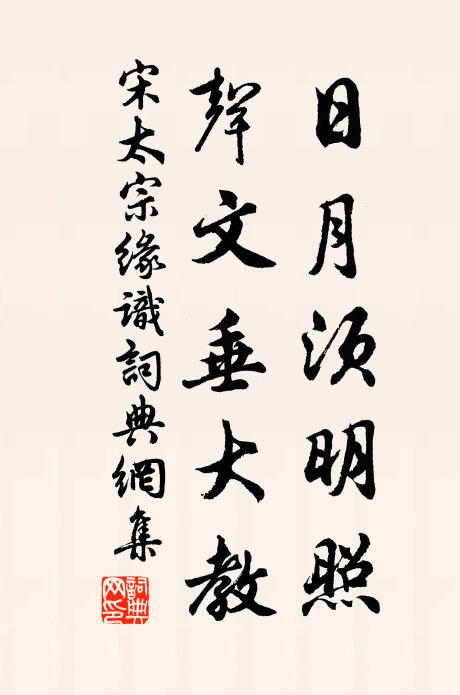 日月須明照
聲文垂大教
宋太宗緣識詞典網集
詞典網印